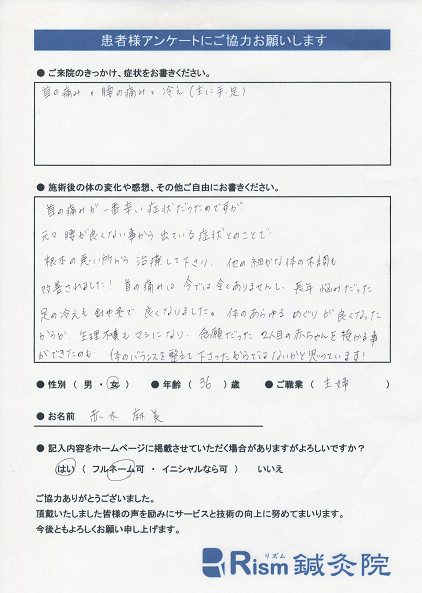 患者様アンケートにご協力お願いします
● ご来院のきっかけ、症状をお書きください。
首の痛み 、腰の痛み 、冷え(主に手.足)
● 施術後の体の変化や感想、その他ご自由にお書きください。
首の痛みが一番辛い症状だったのですが
元々腰が良くない事から出ている症状とのことで
根本の悪い所から治療して下さり、他の細かな体の不調も
改善されました!首の痛みは今では全くありませんし、長年悩みだった
足の冷えも お灸で良くなりました。体のあらゆるめぐりが良くなった
からか、生理不順もマシになり、念願だった2人目の赤ちゃんを授かる事
ができたのも 体のバランスを整えて下さったからではないかと思っています!
● 性別 ( 男 ・ 女 ) ● 年齢 ( 36 )歳 ● ご職業 ( 主婦 )
● お名前 赤木 麻美
● 記入内容をホームページに掲載させていただく場合がありますがよろしいですか?
はい ( フルネーム可 ・ イニシャルなら可 ) いいえ
ご協力ありがとうございました。
頂戴いたしました皆様の声を励みにサービスと技術の向上に努めてまいります。
今後ともよろしくお願い申し上げます。
リズム
Rism鍼灸院